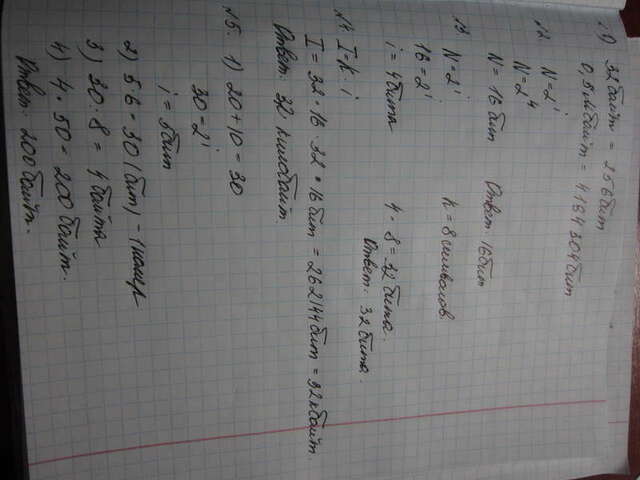 32 байт = 256 бит
0,5 Мбайт = 4194304 бит
№2. N=2^i
N=2^4
N=16 бит Ответ: 16 бит
№3 N=2^i k=8 символов
16=2^i
i=4 бита 4·8=32 бита.
Ответ: 32 бита.
№4. I=K·i
I=32·16·32·16 бит = 262144 бит = 32 кбайт.
Ответ: 32 килобайт.
№5. 1) 20+10=30
30=2^i
i=5 бит
2) 5·6=30 (бит) - 1 номер
3) 30:8=4 байта
4) 4·50=200 байт.
Ответ: 200 байт.